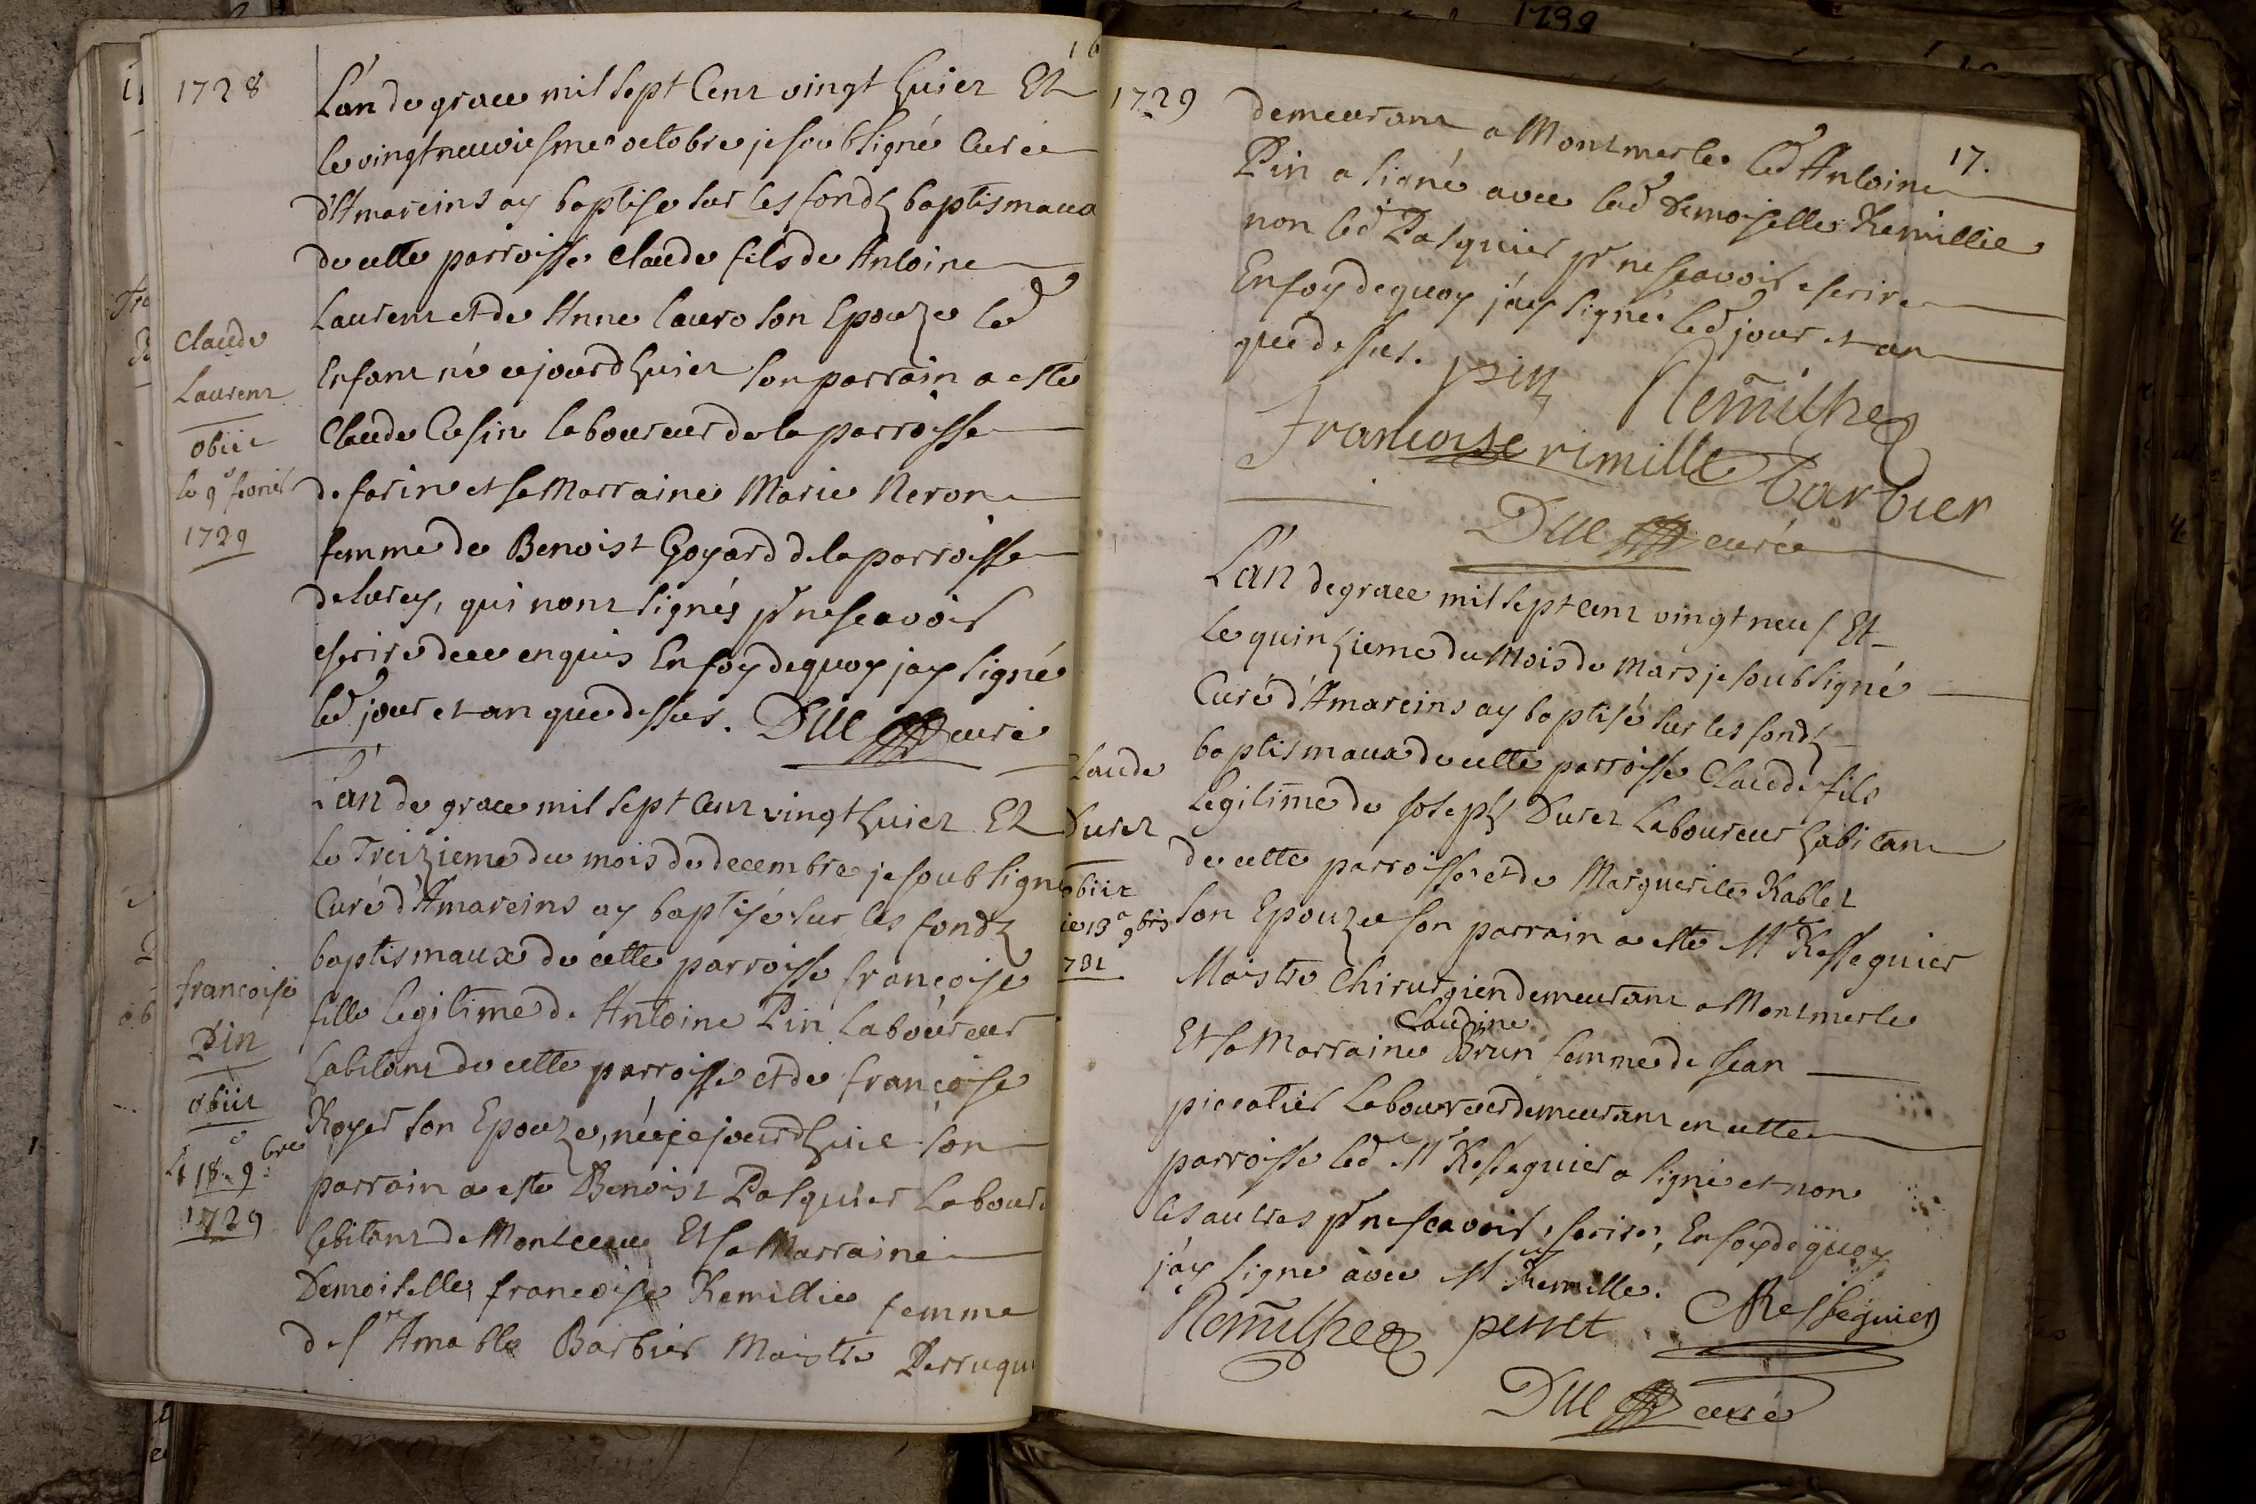 1739
16
1728
L'an de grace mil sept Cent vingt huict Et
le vingtneuviesme octobre je soubsigné Curé
d'Amareins ay baptisé sur les fondz baptismaux
de cette parroisse Claude fils de Antoine
Laurent et de Anne lauro son Epouze led
Enfant né cejourdhuict son parrain a esté
Claude Cusin laboureur de la parroisse
de farin et sa Marraine Marie Neron
femme de Benoist Goyard de la parroisse
de lurcy, qui nont signés pr ne scavoir
escrire de ce enquis En foy de quoy jay signé
led jour et an que dessus. Duc curé
Claude
Laurent
obiit
le 9e
1729
L'an de grace mil sept Cent vingt huict Et
le Treizieme du mois de decembre je soubsigné
Curé d'Amareins ay baptisé sur les fondz
baptismaux de cette parroisse françoise
fille legitime de Antoine Pin laboureur
habitant de cette parroisse et de françoise
Royer son Epouze, née cejourdhuic son
parrain a esté Benoist Pasquier Labour
habitant de Montceau Et sa Marraine
Demoiselle françoise Remillie femme
de sr Amable Barbier Maistre Perruqui
francoise
Pin
obiit
le 18e 9bre
1729
1729
17.
demeurant a Montmerle led Antoine
Pin a signé avec lad Demoiselle Remillie
non led Pasquier pr ne scavoir escrire
En foy de quoy j'ay signé led jour et an
que dessus. pin Remilhe
francoise rimille barbier
Duc curé
L'an de grace mil sept cent vingt neuf Et
le quinzieme du Mois de Mars je soubsigné
Curé d'Amareins ay baptisé sur les fondz
baptismaux de cette parroisse Claude fils
Legitime de Joseph Duret Laboureur habitant
de cette parroisse et de Marguerite Rablet
son Epouze son parrain a esté Mr Resseguier
Maistre Chirurgien demeurant a Montmerle
Claudine
Et sa Marraine Brun femme de Jean
piccatier Laboureur demeurant en cette
parroisse led Mr Resseguier a signé et non
les autres pr ne scavoir escrire, En foy de quoy
j'ay signé avec Mr Remille.
Remilhe perret Resseguier
Duc curé
Claude
Duret
obiit
le 13e 9bre
731